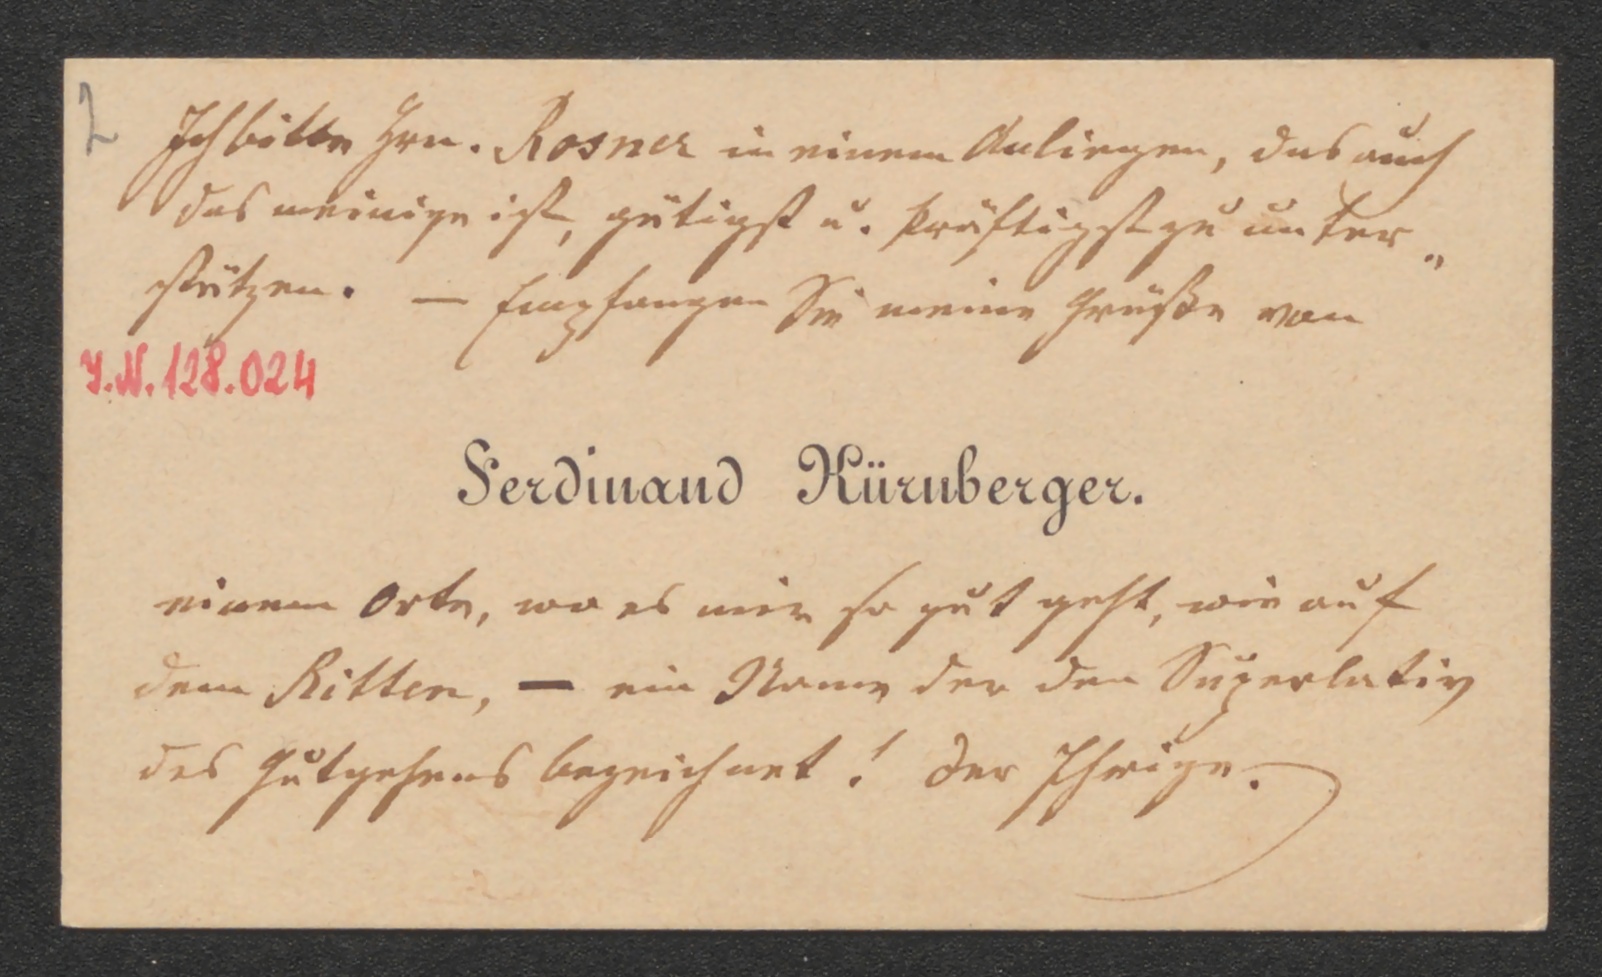 2
Ich bitte Hrn. Rosner in einem Anliegen, das auch
das meinige ist, gütigst u. kräftigst zu unter„
stützen. — Empfangen Sie meine Grüße von
I.N. 128.024
Ferdinand Kürnberger.
einem Orte, wo es mir so gut geht, wie auf
dem Ritten, — ein Name der den Superlativ
des Gutgehens bezeichnet! Der Ihrige.